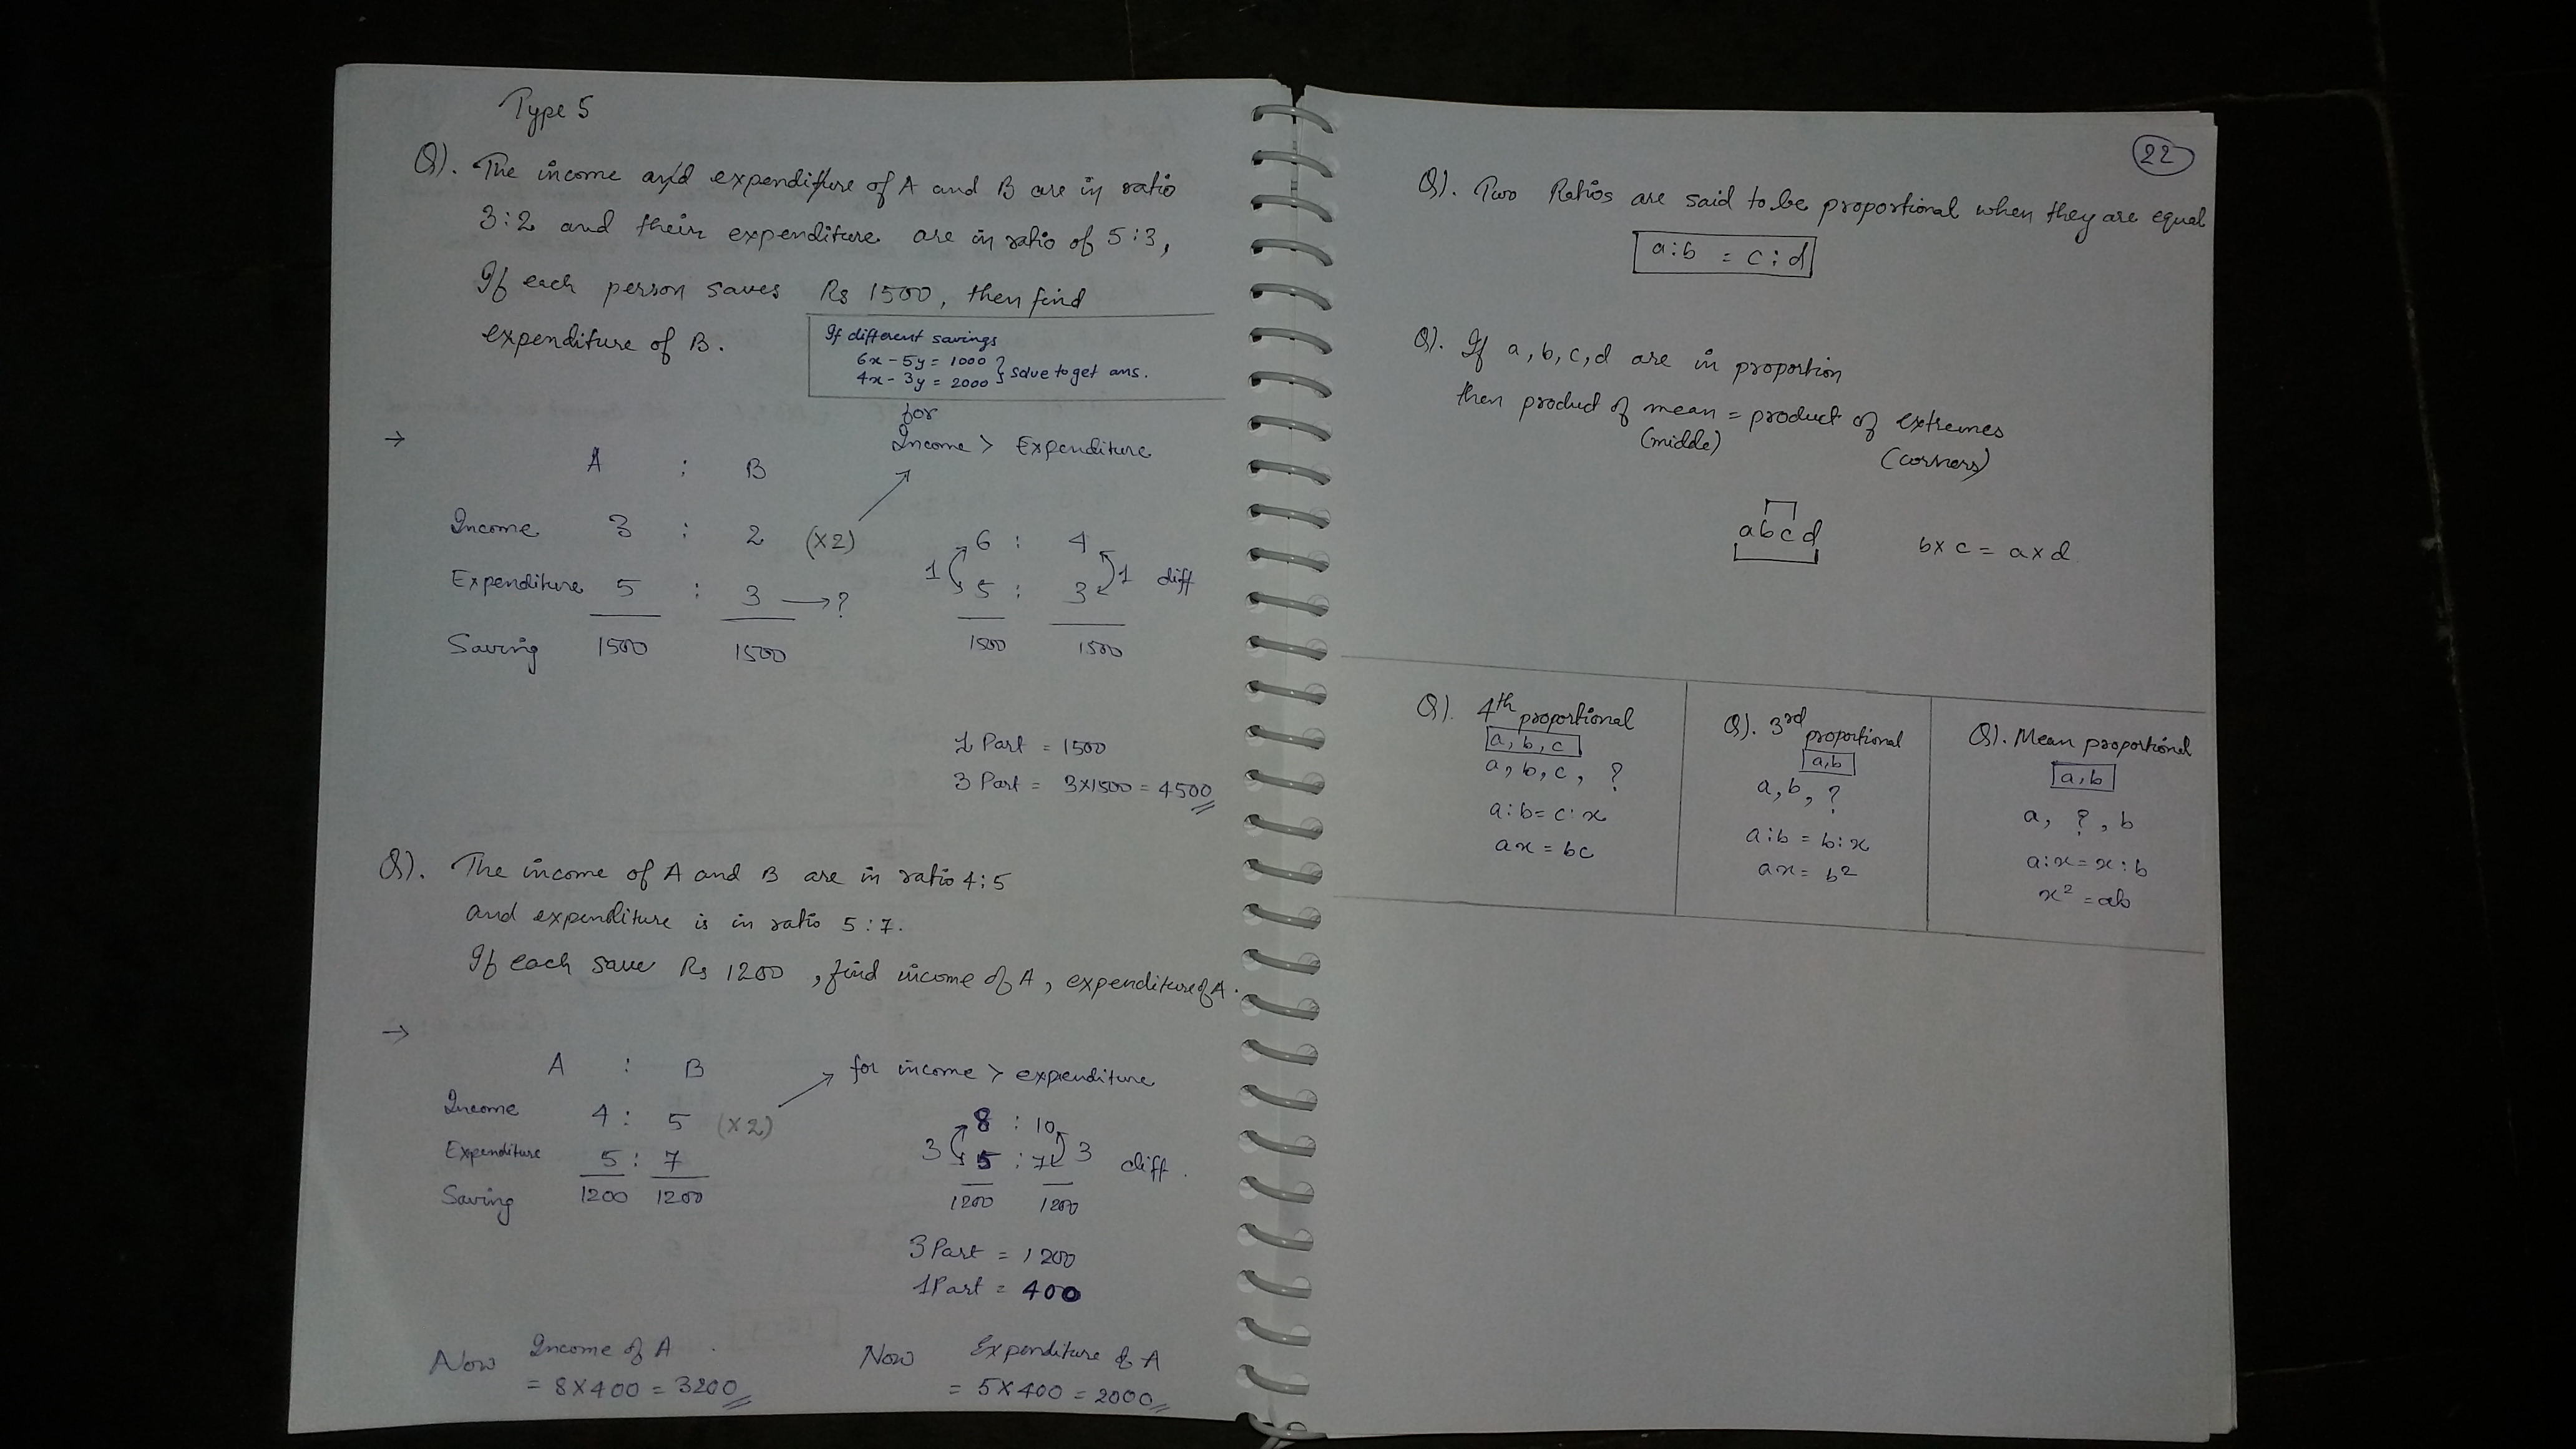 Type 5
Q). The income and expenditure of A and B are in ratio
3:2 and their expenditure are in ratio of 5:3,
If each person saves Rs 1500, then find
expenditure of B.
If different savings
6x - 5y = 1000
4x - 3y = 2000 } solve to get ans.
for
Income > Expenditure
→
A : B
Income 3 : 2 (x2)
Expenditure 5 : 3 → ?
Saving 1500 1500
6 : 4
1 5 : 3 1 diff
1500 1500
1 Part = 1500
3 Part = 3x1500 = 4500
Q). The income of A and B are in ratio 4:5
and expenditure is in ratio 5:7.
If each save Rs 1200, find income of A, expenditure of A.
→
A : B
for income > expenditure
Income 4 : 5 (x2)
Expenditure 5 : 7
Saving 1200 1200
8 : 10
3 5 : 7 3 diff.
1200 1200
3 Part = 1200
1 Part = 400
Now Income of A
= 8x400 = 3200
Now Expenditure of A
= 5x400 = 2000
22
Q). Two Ratios are said to be proportional when they are equal
a:b = c:d
Q). If a, b, c, d are in proportion
then product of mean = product of extremes
(middle) (corners)
a b c d b x c = a x d
Q). 4th proportional
a, b, c
a, b, c, ?
a:b = c:x
ax = bc
Q). 3rd proportional
a,b
a, b, ?
a:b = b:x
ax = b²
Q). Mean proportional
a,b
a, ?, b
a:x = x:b
x² = ab